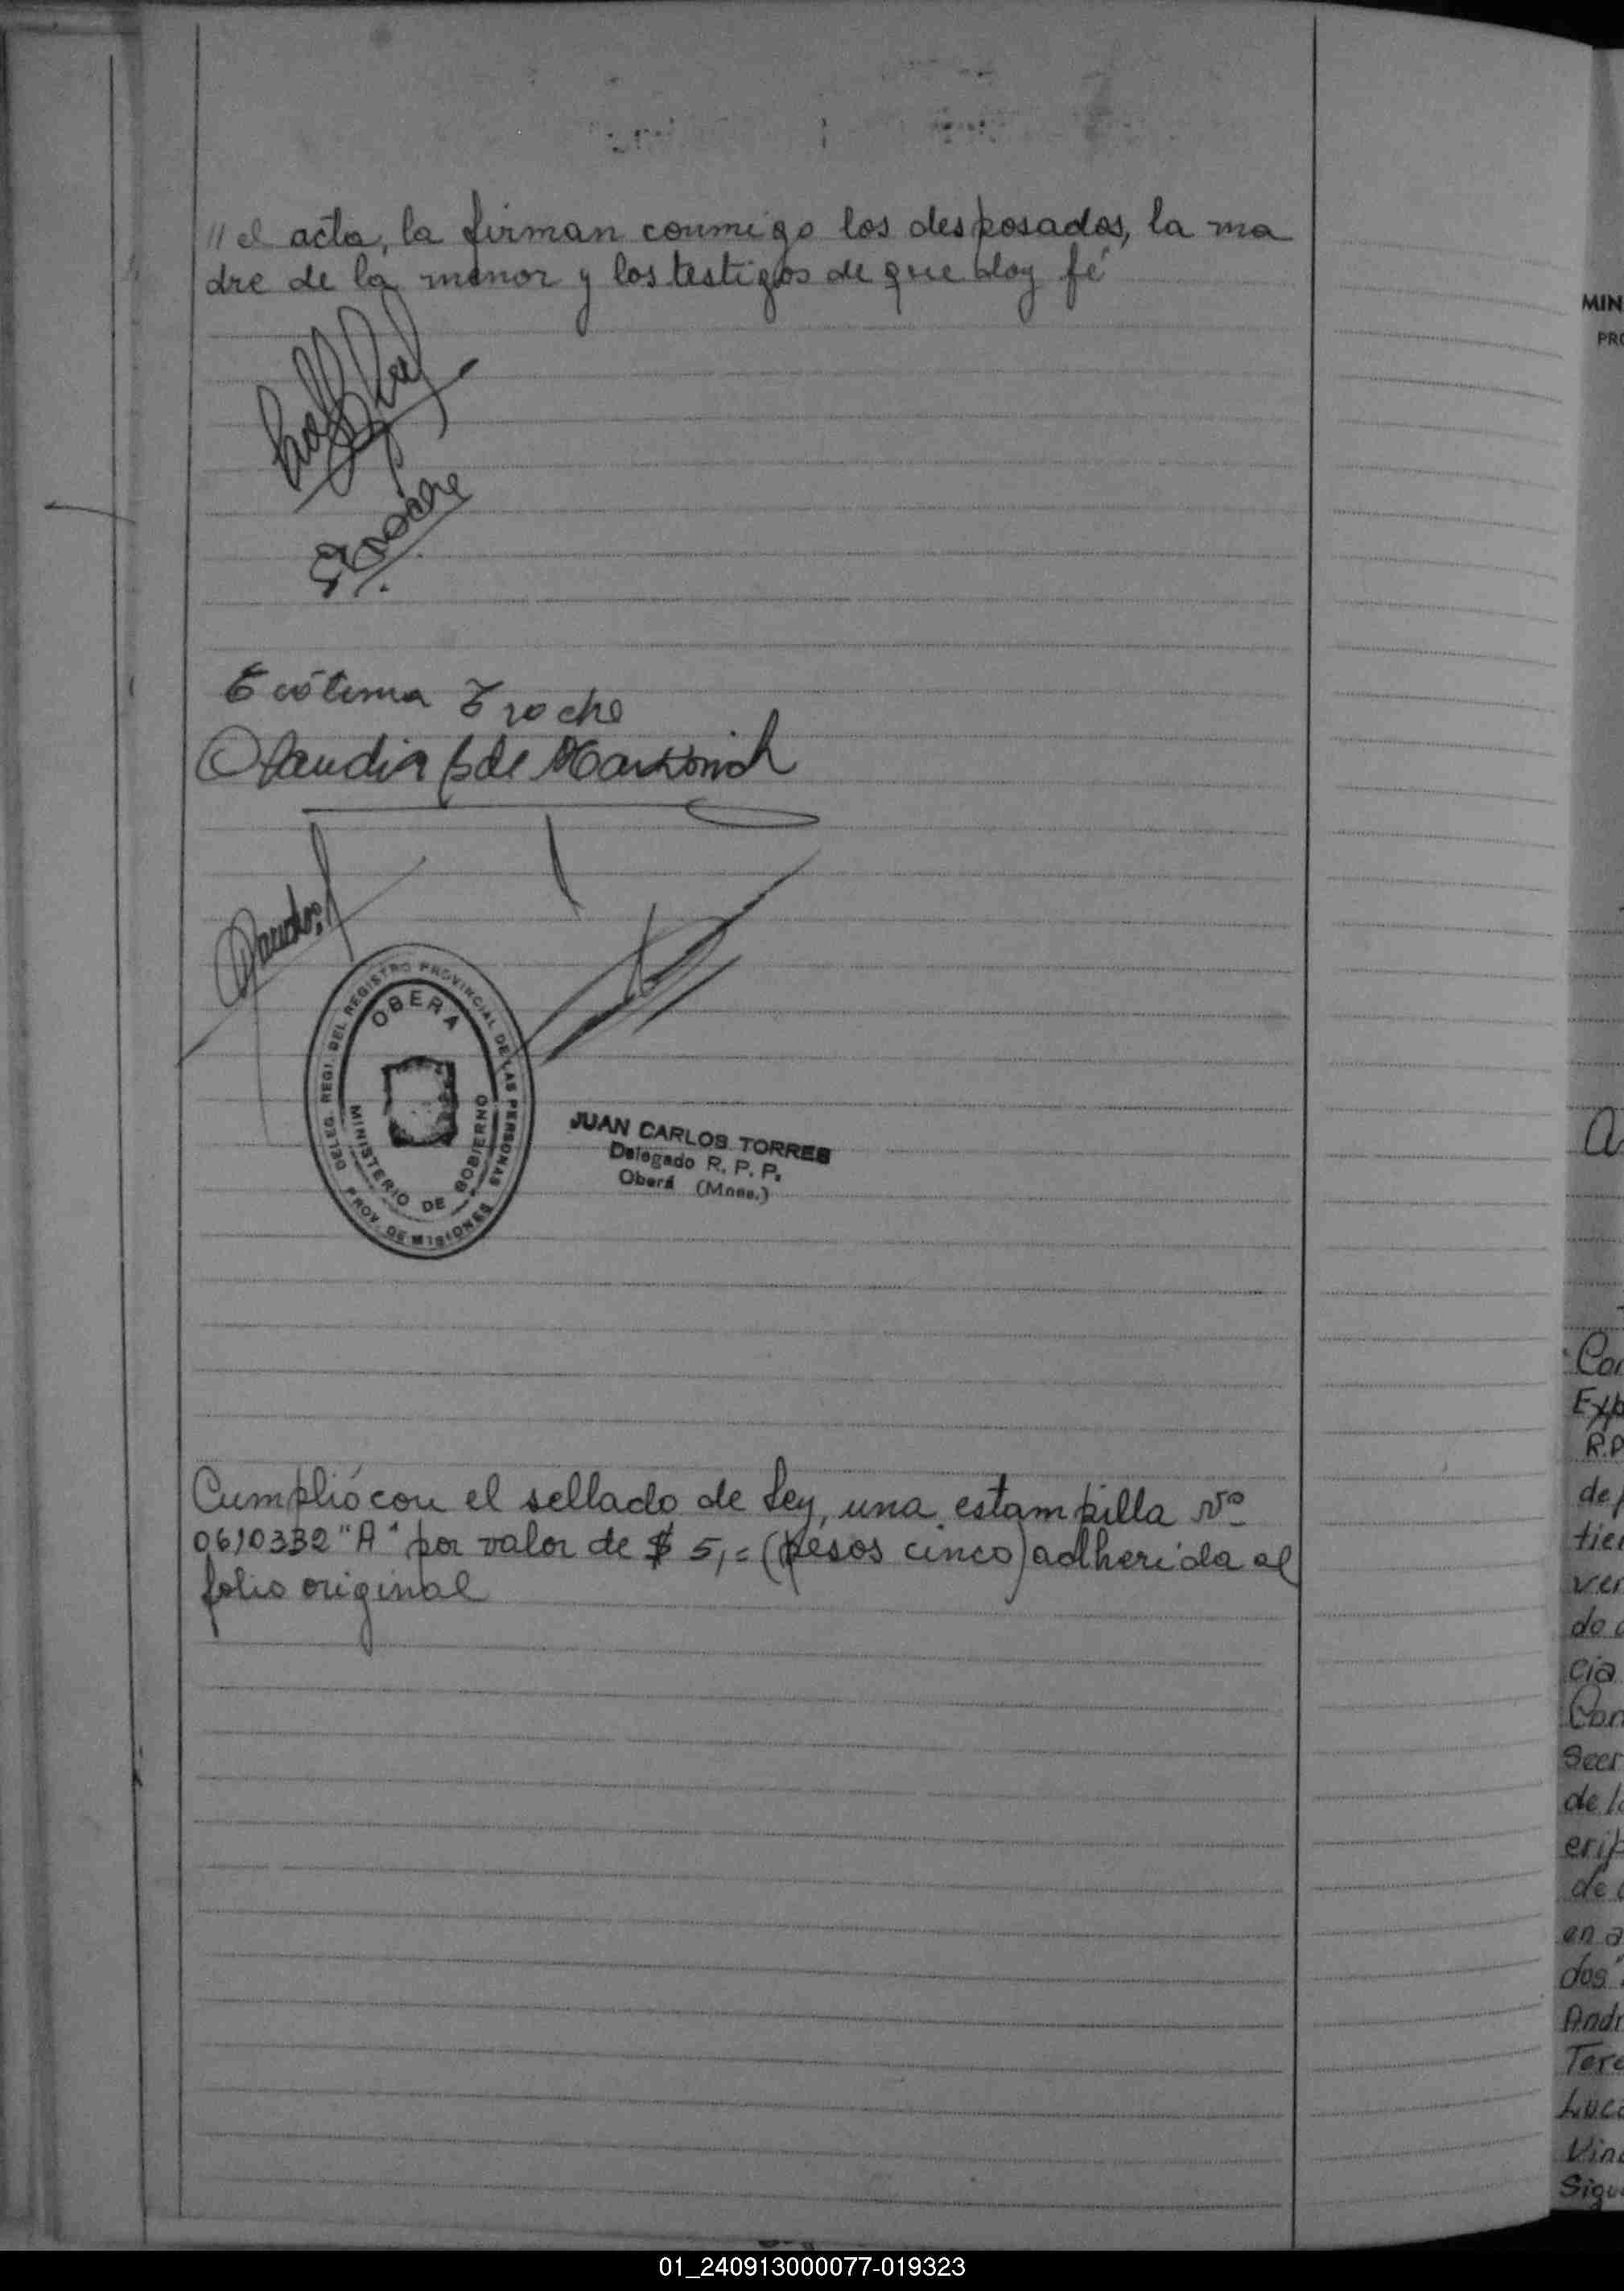 " el acta, la firman conmigo los desposados, la ma
dre de la menor y los testigos de que doy fé
ETroche
Erótema Troche
Claudia de
DELEG. REGI. DEL REGISTRO PROVINCIAL DE LAS PERSONAS
OBERA
MINISTERIO DE GOBIERNO
PROV. DE MISIONES
JUAN CARLOS TORRES
Delegado R. P. P.
Oberá (Mnes.)
Cumplió con el sellado de Ley, una estampilla Nº
0610332 "A" por valor de $ 5,= (pesos cinco) adherida al
folio original
MIN
PRO
a
Con
Exp
R.P
de
tien
ver
do
cia
Con
Secr
de l
erip
de
en a
dos
Andr
Tere
Luca
Vin
Sigu
01_240913000077-019323